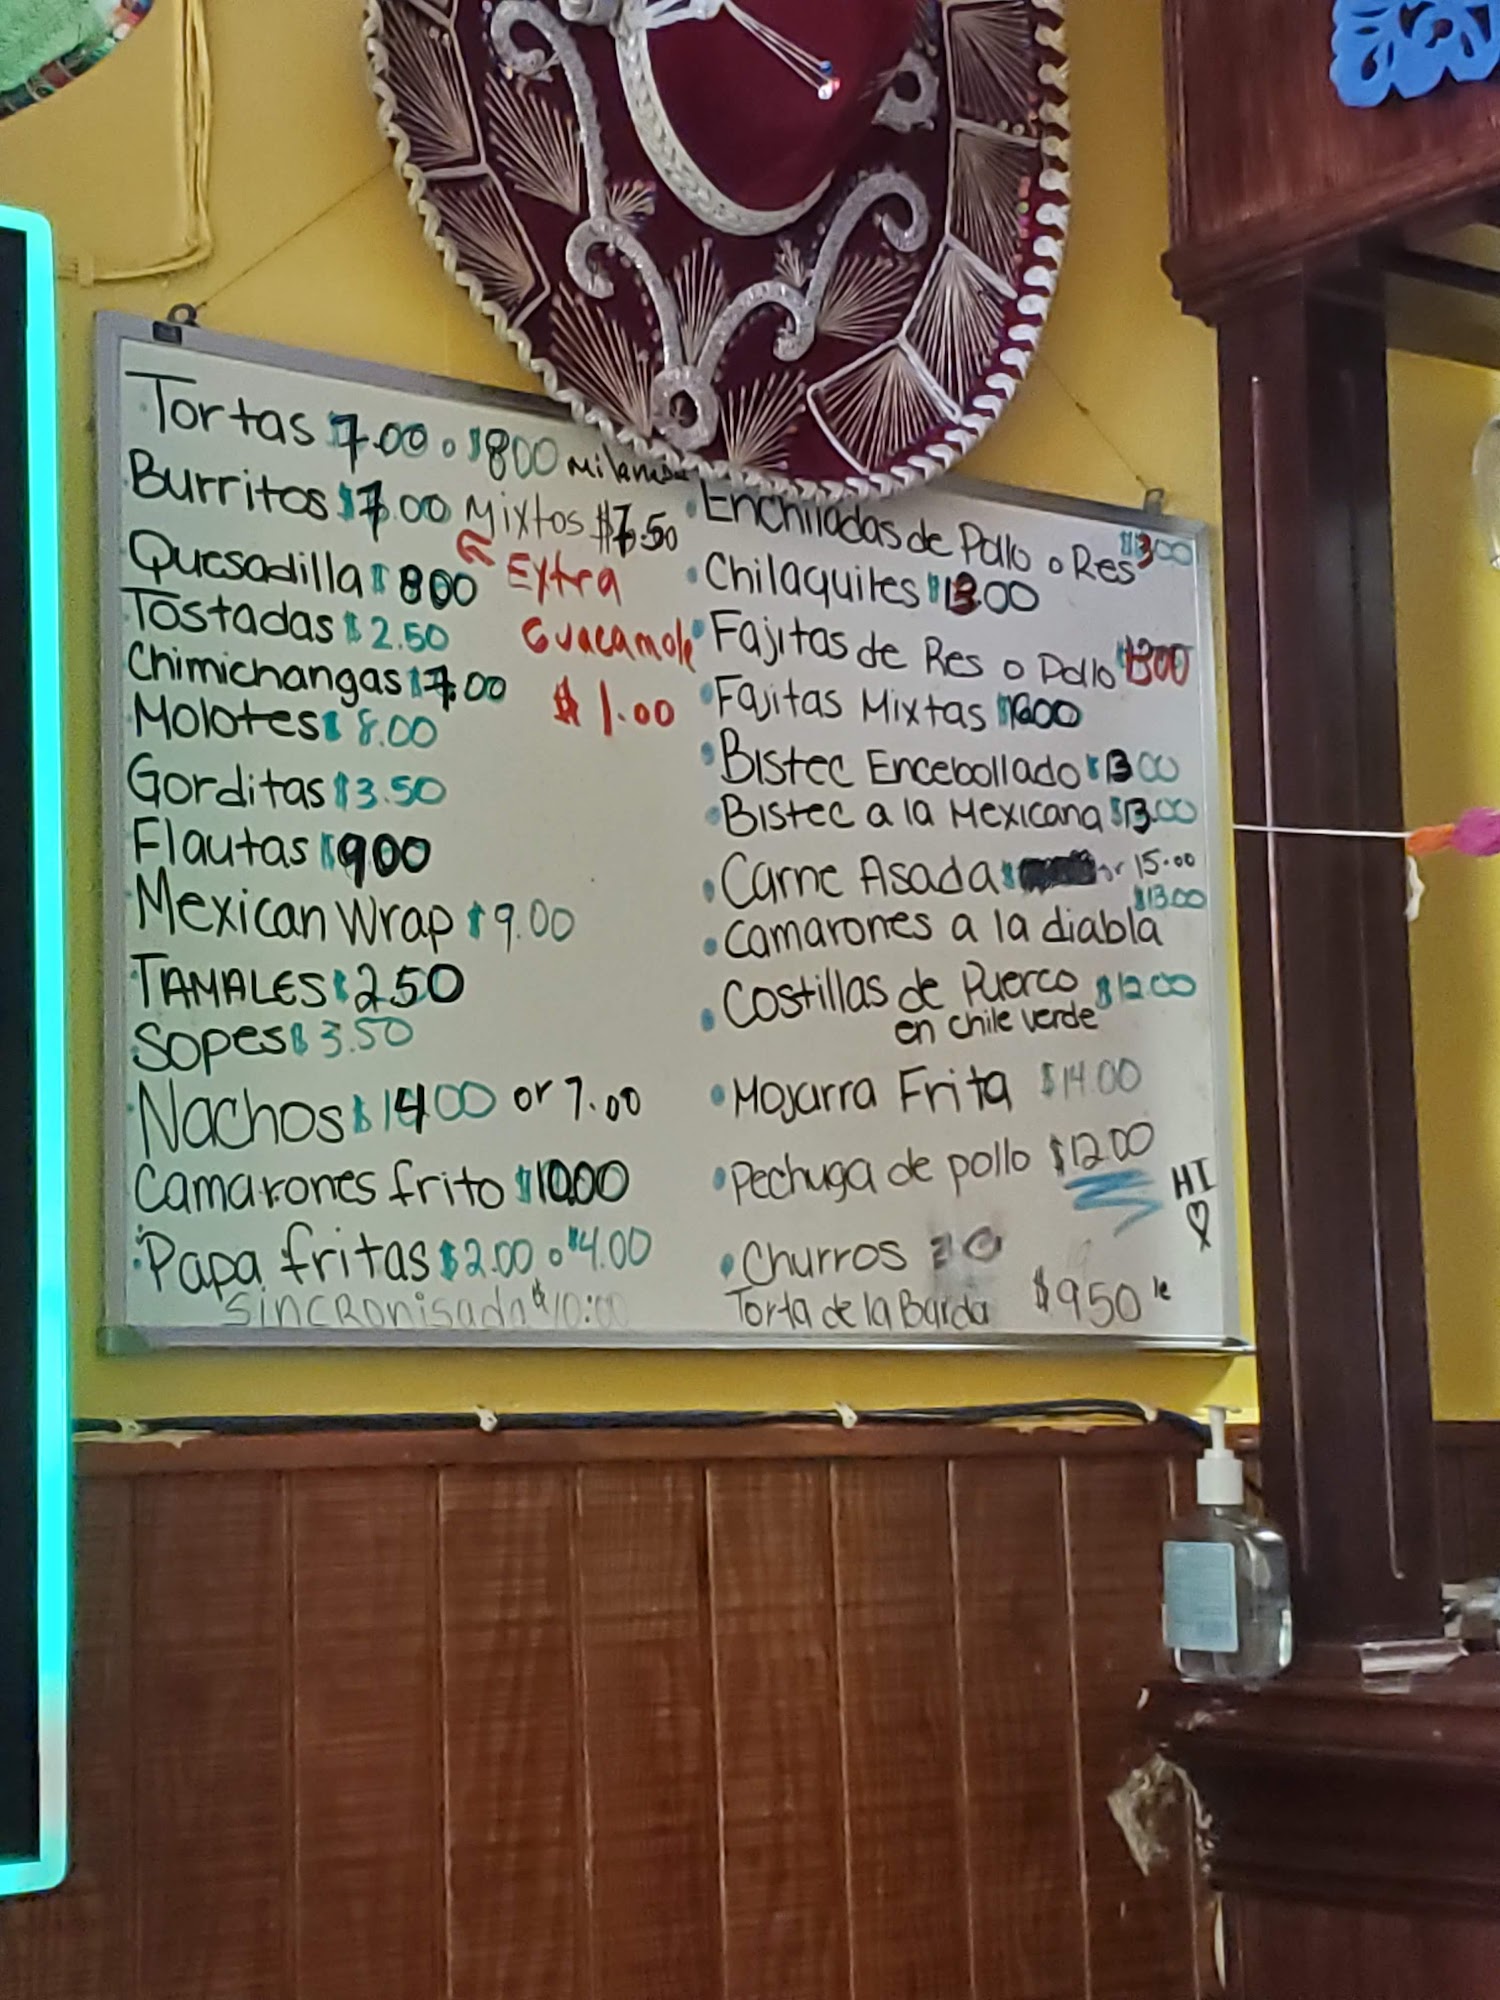 Tortas $7.00 o $800 Milanesa
Burritos $7.00 Mixtos $7.50
Quesadilla $800
Extra
Guacamole
$1.00
Tostadas $2.50
Chimichangas $7.00
Molotes $8.00
Gorditas $3.50
Flautas $900
Mexican Wrap $9.00
TAMALES $250
Sopes $3.50
Nachos $1400 or 7.00
Camarones frito $1000
Papa fritas $2.00 o $4.00
Sincronisada $10:00
Enchiladas de Pollo o Res $1300
Chilaquiles $1300
Fajitas de Res o Pollo $1300
Fajitas Mixtas $1600
Bistec Encebollado $1300
Bistec a la Mexicana $13.00
Carne Asada or 15.00
Camarones a la diabla $13.00
Costillas de Puerco $1200
en chile verde
Mojarra Frita $14.00
Pechuga de pollo $1200
HI
Churros
Torta de la Barda $950